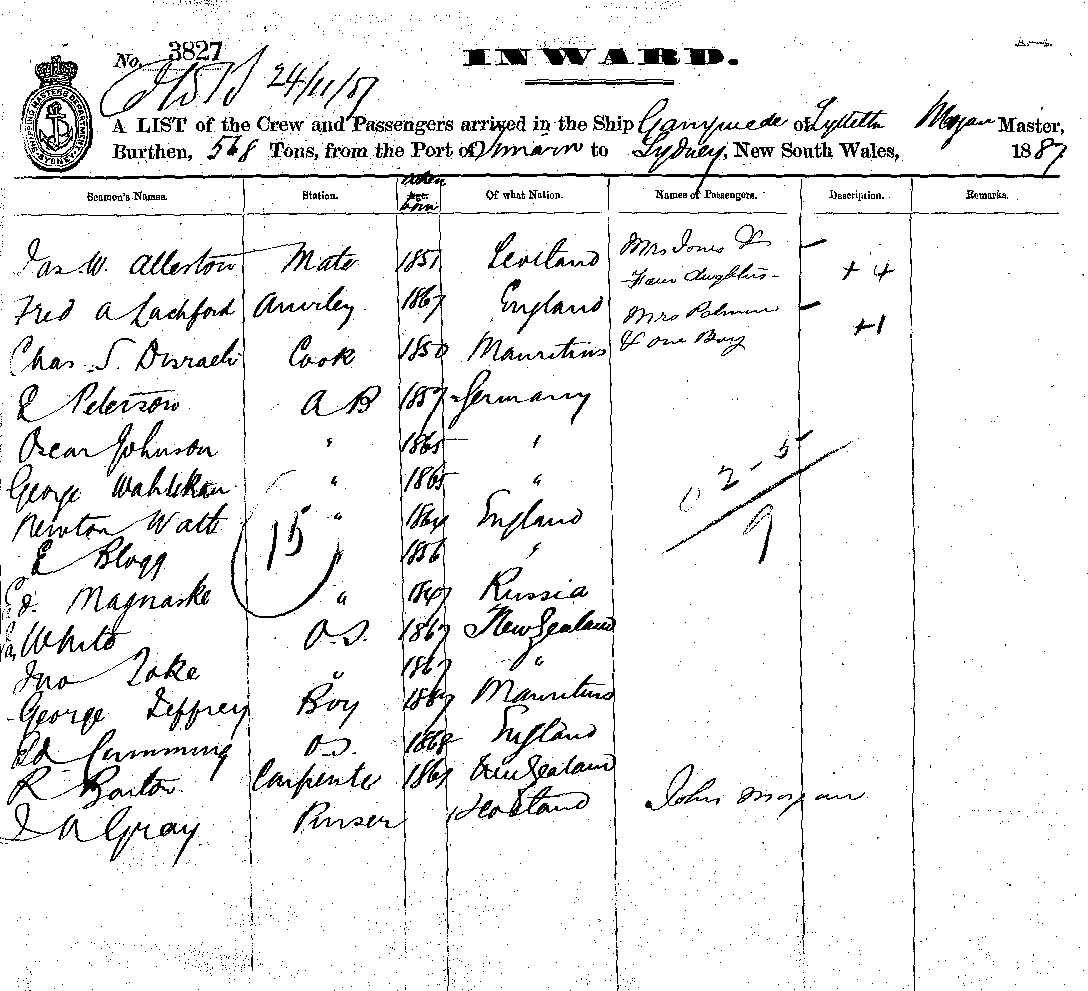 INWARD.
No. 3827
24/11/87
A LIST of the Crew and Passengers arrived in the Ship Ganymede of Lyttelton Morgan Master,
Burthen, 568 Tons, from the Port of to Sydney, New South Wales, 1887
Seamen's Names. Station. when born Age. Of what Nation. Names of Passengers. Description. Remarks.
Jas W. Allerton Mate 1851 Scotland Mrs Jones &
Four daughters - + 4
Fred A Lachford 1867 England Mrs Palmer
& one Boy +1
Chas. S. Disraeli Cook 1850 Mauritius
E Peterson A B 1857 Germany
Oscar Johnson " 1865 "
George " 1865 "
Newton Watt " 1864 England
E Blogg " 1856 "
15
2 - 5
9
Ed. Magnaske " Russia
White O.S. 1867 New Zealand
Jno Zoke " 1867 "
George Jeffrey Boy Mauritius
Ed Cumming O.S. 1868 England
R Barton Carpenter New Zealand
J A Gray Purser Scotland John Morgan